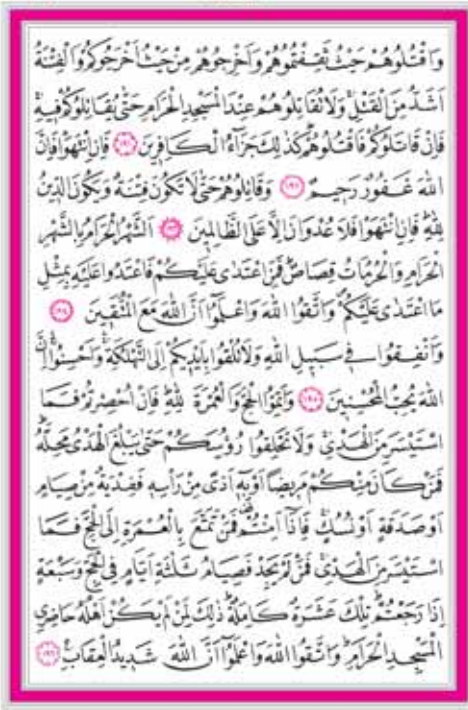 وَاقْتُلُوهُمْ حَيْثُ ثَقِفْتُمُوهُمْ وَاَخْرِجُوهُمْ مِنْ حَيْثُ اَخْرَجُوكُمْ وَالْفِتْنَةُ
اَشَدُّ مِنَ الْقَتْلِ وَلَا تُقَاتِلُوهُمْ عِنْدَ الْمَسْجِدِ الْحَرَامِ حَتّٰى يُقَاتِلُوكُمْ فِيهِ
فَاِنْ قَاتَلُوكُمْ فَاقْتُلُوهُمْ كَذٰلِكَ جَزَٓاءُ الْكَافِرِينَ ﴿١٩١﴾ فَاِنِ انْتَهَوْا فَاِنَّ
اللّٰهَ غَفُورٌ رَحِيمٌ ﴿١٩٢﴾ وَقَاتِلُوهُمْ حَتّٰى لَا تَكُونَ فِتْنَةٌ وَيَكُونَ الدِّينُ
لِلّٰهِ فَاِنِ انْتَهَوْا فَلَا عُدْوَانَ اِلَّا عَلَى الظَّالِمِينَ ﴿١٩٣﴾ اَلشَّهْرُ الْحَرَامُ بِالشَّهْرِ
الْحَرَامِ وَالْحُرُمَاتُ قِصَاصٌ فَمَنِ اعْتَدٰى عَلَيْكُمْ فَاعْتَدُوا عَلَيْهِ بِمِثْلِ
مَا اعْتَدٰى عَلَيْكُمْ وَاتَّقُوا اللّٰهَ وَاعْلَمُٓوا اَنَّ اللّٰهَ مَعَ الْمُتَّقِينَ ﴿١٩٤﴾
وَاَنْفِقُوا فِي سَبِيلِ اللّٰهِ وَلَا تُلْقُوا بِاَيْدِيكُمْ اِلَى التَّهْلُكَةِ وَاَحْسِنُوا اِنَّ
اللّٰهَ يُحِبُّ الْمُحْسِنِينَ ﴿١٩٥﴾ وَاَتِمُّوا الْحَجَّ وَالْعُمْرَةَ لِلّٰهِ فَاِنْ اُحْصِرْتُمْ فَمَا
اسْتَيْسَرَ مِنَ الْهَدْيِ وَلَا تَحْلِقُوا رُؤُسَكُمْ حَتّٰى يَبْلُغَ الْهَدْيُ مَحِلَّهُ
فَمَنْ كَانَ مِنْكُمْ مَرِيضًا اَوْ بِهِ اَذًى مِنْ رَأْسِهِ فَفِدْيَةٌ مِنْ صِيَامٍ
اَوْ صَدَقَةٍ اَوْ نُسُكٍ فَاِذَٓا اَمِنْتُمْ فَمَنْ تَمَتَّعَ بِالْعُمْرَةِ اِلَى الْحَجِّ فَمَا
اسْتَيْسَرَ مِنَ الْهَدْيِ فَمَنْ لَمْ يَجِدْ فَصِيَامُ ثَلٰثَةِ اَيَّامٍ فِي الْحَجِّ وَسَبْعَةٍ
اِذَا رَجَعْتُمْ تِلْكَ عَشَرَةٌ كَامِلَةٌ ذٰلِكَ لِمَنْ لَمْ يَكُنْ اَهْلُهُ حَاضِرِي
الْمَسْجِدِ الْحَرَامِ وَاتَّقُوا اللّٰهَ وَاعْلَمُٓوا اَنَّ اللّٰهَ شَدِيدُ الْعِقَابِ ﴿١٩٦﴾